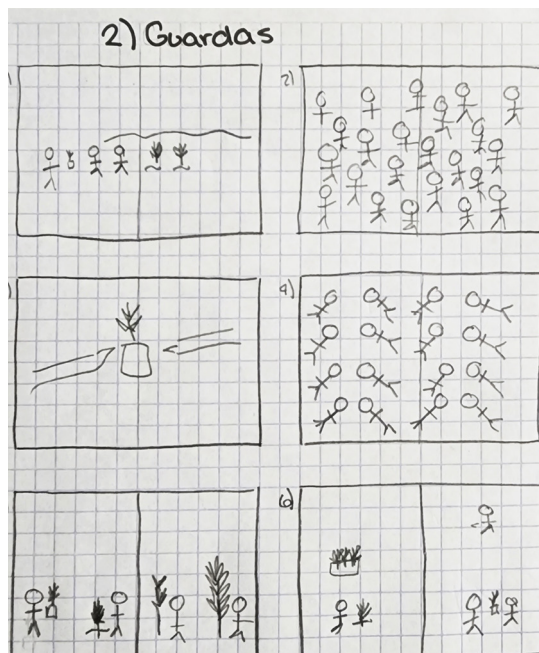 2) Guardas
2)
4)
6)